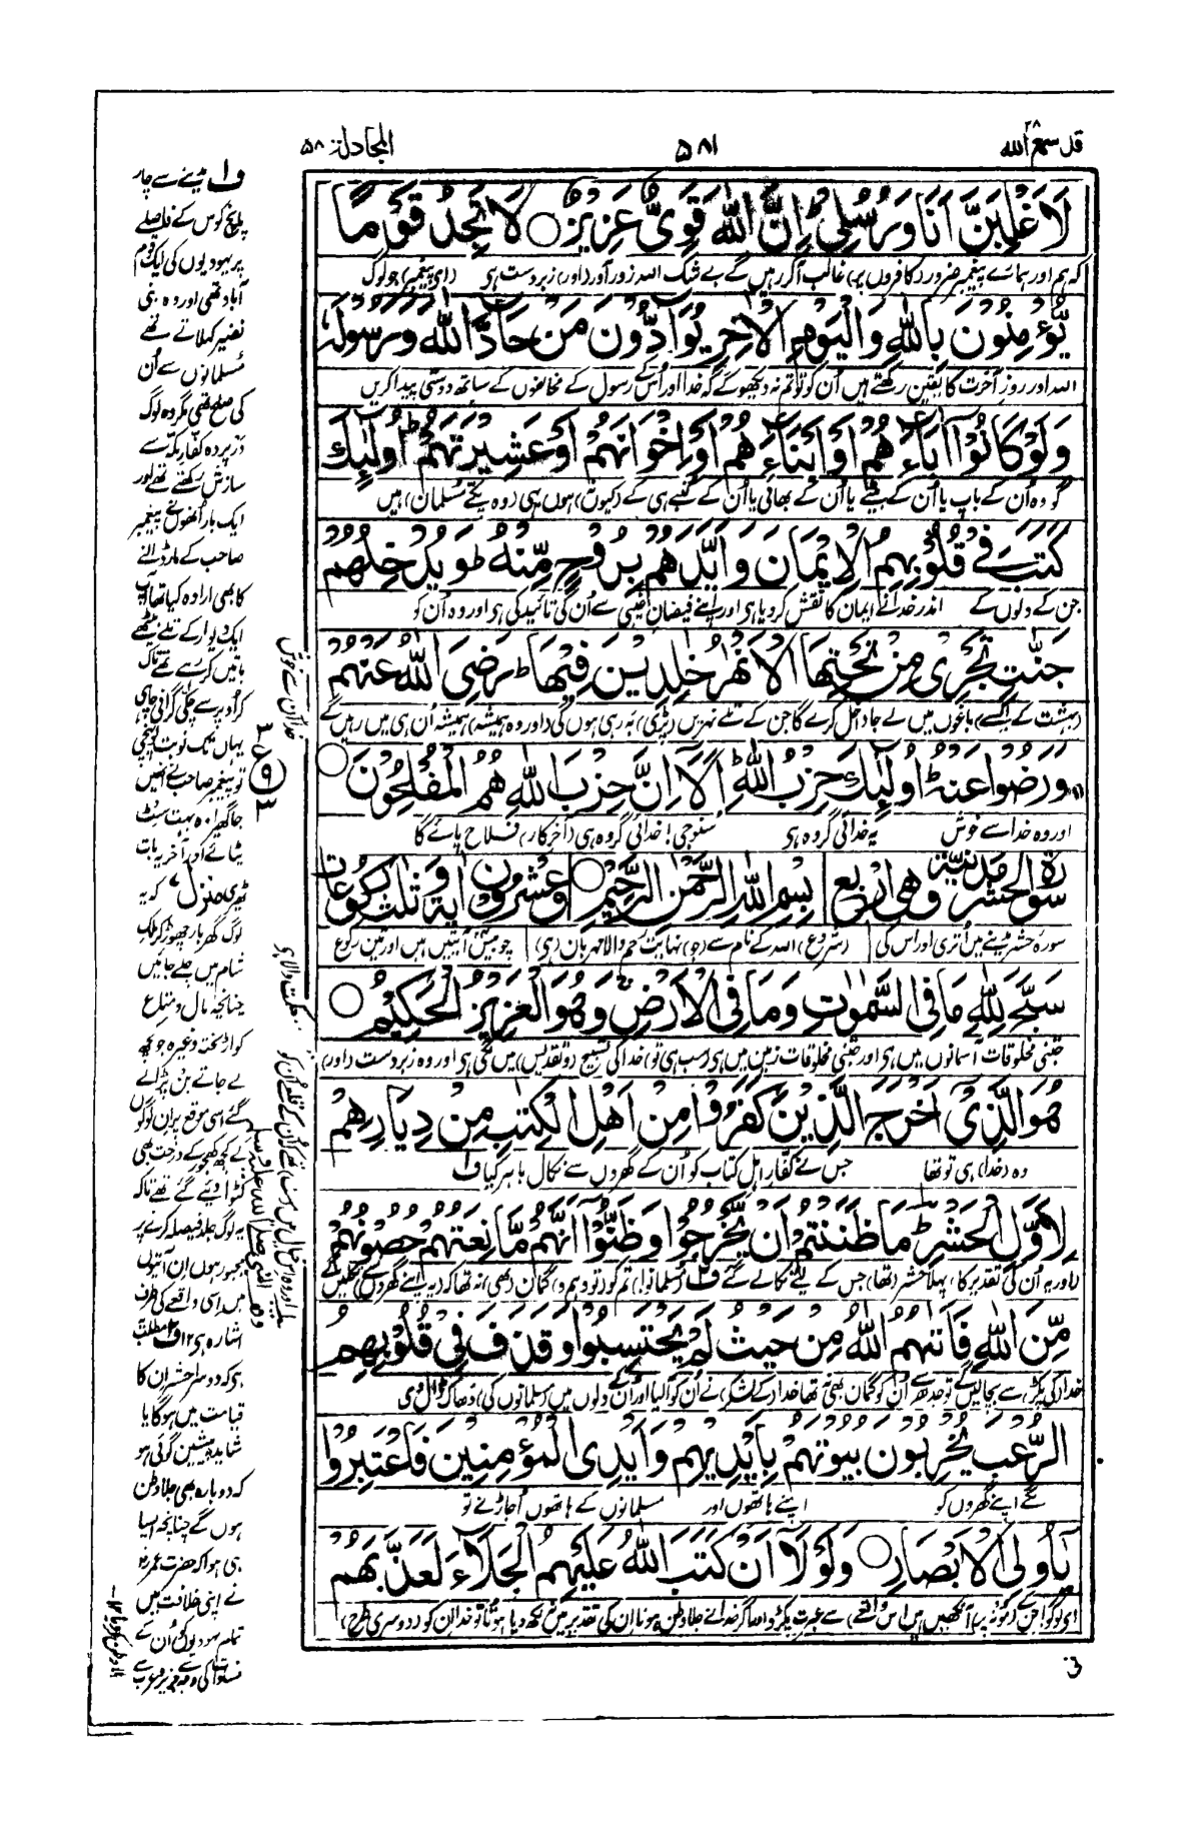 قد سمع اللہ ۲۸
۵۸۱
المجادلة ۵۸
لَاَغْلِبَنَّ اَنَا وَرُسُلِیْ ؕ اِنَّ اللّٰهَ قَوِیٌّ عَزِیْزٌ ○ لَا تَجِدُ قَوْمًا
کہ ہم اور ہمارے پیغمبر ضرور (کافروں پر) غالب آکر رہیں گے بے شک اللہ زور آور (اور) زبردست ہی (ای پیغمبر) جو لوگ
یُّؤْمِنُوْنَ بِاللّٰهِ وَالْیَوْمِ الْاٰخِرِ یُوَآدُّوْنَ مَنْ حَآدَّ اللّٰهَ وَرَسُوْلَهٗ
اللہ اور روز آخرت کا یقین رکھتے ہیں اُن کو تو تم نہ دیکھو گے کہ خدا اور اُس کے رسول کے مخالفوں کے ساتھ دوستی پیدا کریں
وَلَوْ كَانُوْۤا اٰبَآءَهُمْ اَوْ اَبْنَآءَهُمْ اَوْ اِخْوَانَهُمْ اَوْ عَشِیْرَتَهُمْ ؕ اُولٰٓىِٕكَ
گو وہ اُن کے باپ یا اُن کے بیٹے یا اُن کے بھائی یا اُن کے کنبے ہی کے (کیوں نہ) ہوں یہی (وہ پکے مسلمان) ہیں
كَتَبَ فِیْ قُلُوْبِهِمُ الْاِیْمَانَ وَاَیَّدَهُمْ بِرُوْحٍ مِّنْهُ ؕ وَیُدْخِلُهُمْ
جن کے دلوں کے اندر خدا نے ایمان کا نقش کر دیا ہی اور اپنے فیضان غیبی سے اُن کی تائید کی ہی اور وہ اُن کو
جَنّٰتٍ تَجْرِیْ مِنْ تَحْتِهَا الْاَنْهٰرُ خٰلِدِیْنَ فِیْهَا ؕ رَضِیَ اللّٰهُ عَنْهُمْ
(بہشت کے ایسے) باغوں میں لے جا داخل کرے گا جن کے تلے نہریں (پڑی) بہ رہی ہوں گی (اور وہ ہمیشہ) ہمیشہ اُن ہی میں رہیں گے
وَرَضُوْا عَنْهُ ؕ اُولٰٓىِٕكَ حِزْبُ اللّٰهِ ؕ اَلَاۤ اِنَّ حِزْبَ اللّٰهِ هُمُ الْمُفْلِحُوْنَ ○
اور وہ خدا سے خوش یہ خدائی گروہ ہی سنو جی! خدائی گروہ ہی (آخر کار) فلاح پائے گا
سورة الحشر مدنیة وهی اربع | بِسْمِ اللّٰهِ الرَّحْمٰنِ الرَّحِیْمِ ○ | وعشرون اٰیة وثلث رکوعات
سورۂ حشر مدینے میں اُتری اور اس کی | (شروع) اللہ کے نام سے (جو) نہایت رحم والا مہربان (ہی) | چوبیس آیتیں ہیں اور تین رکوع
سَبَّحَ لِلّٰهِ مَا فِی السَّمٰوٰتِ وَمَا فِی الْاَرْضِ ۚ وَهُوَ الْعَزِیْزُ الْحَكِیْمُ ○
جتنی مخلوقات آسمانوں میں ہی اور جتنی مخلوقات زمین میں ہی (سب ہی تو) خدا کی تسبیح (و تقدیس) میں لگی ہی اور وہ زبردست (اور)
هُوَ الَّذِیْۤ اَخْرَجَ الَّذِیْنَ كَفَرُوْا مِنْ اَهْلِ الْكِتٰبِ مِنْ دِیَارِهِمْ
وہ (خدا) ہی تو تھا جس نے کفار اہل کتاب کو اُن کے گھروں سے نکال باہر کیا ف۱
لِاَوَّلِ الْحَشْرِ ؕ مَا ظَنَنْتُمْ اَنْ یَّخْرُجُوْا وَظَنُّوْۤا اَنَّهُمْ مَّانِعَتُهُمْ حُصُوْنُهُمْ
(اور یہ اُن کی تقدیر کا) پہلا حشر (تھا) جس کے لیے نکالے گئے ف۲ (مسلمانو!) تم کو (تو وہم و) گمان (بھی) نہ تھا کہ (یہ اپنے گھروں سے) نکلیں گے
مِّنَ اللّٰهِ فَاَتٰىهُمُ اللّٰهُ مِنْ حَیْثُ لَمْ یَحْتَسِبُوْا وَقَذَفَ فِیْ قُلُوْبِهِمُ
خدا (کی پکڑ) سے بچا لیں گے تو جدھر سے اُن کو گمان بھی نہ تھا خدا (کے لشکر) نے اُن کو آلیا اور اُن کے دلوں میں (مسلمانوں کی) دھاک ڈال دی
الرُّعْبَ یُخْرِبُوْنَ بُیُوْتَهُمْ بِاَیْدِیْهِمْ وَاَیْدِی الْمُؤْمِنِیْنَ فَاعْتَبِرُوْا
لگے اپنے گھروں کو اپنے ہاتھوں اور مسلمانوں کے ہاتھوں اُجاڑنے تو
یٰۤاُولِی الْاَبْصَارِ ○ وَلَوْلَاۤ اَنْ كَتَبَ اللّٰهُ عَلَیْهِمُ الْجَلَآءَ لَعَذَّبَهُمْ
ای لوگو! جن کے آنکھیں ہیں (اس واقعے) سے عبرت پکڑو اور اگر خدا نے جلا وطن ہونا ان کی تقدیر میں نہ لکھ دیا ہوتا تو خدا ان کو (دوسری طرح)
خدا اُن سے خوش
ع ۹ ۳
حکمت والا ہی
ف۱ مدینے سے چار
پانچ کوس کے فاصلے
پر یہودیوں کی ایک قوم
آباد تھی اور وہ بنی
نضیر کہلاتے تھے
مسلمانوں سے اُن
کی صلح تھی مگر وہ لوگ
در پردہ کفار مکہ سے
سازش رکھتے تھے اور
ایک بار اُنھوں نے پیغمبر
صاحب کے مار ڈالنے
کا بھی ارادہ کیا تھا آپ
ایک دیوار کے تلے بیٹھے
باتیں کر رہے تھے تاک
کر اوپر سے چکی گرانی چاہی
یہاں تک نوبت پہنچی
تو پیغمبر صاحب نے انھیں
جا گھیرا وہ بہت سٹ
پٹائے اور آخر یہ بات
ٹھیری منزل، کہ یہ
لوگ گھر بار چھوڑ کر ملک
شام میں چلے جائیں
چنانچہ مال و متاع
کواڑ تختہ وغیرہ جو کچھ
لے جاتے بن پڑا لے
گئے اسی موقع پر ان لوگوں
کے کچھ کھجور کے درخت بھی
کٹوا دیئے گئے تھے تاکہ
یہ لوگ جلد فیصلہ کرنے پر
مجبور ہوں ان آیتوں
میں اسی واقعے کی طرف
اشارہ ہی ۱۲ ف۲ مطلب
یہ ہی کہ دوسرا حشر ان کا
قیامت میں ہوگا یا
شاید پیشین گوئی ہو
کہ دوبارہ بھی جلا وطن
ہوں گے چنانچہ ایسا
ہی ہوا کہ حضرت عمر رض
نے اپنی خلافت میں
تمام یہودیوں کو اُن کے